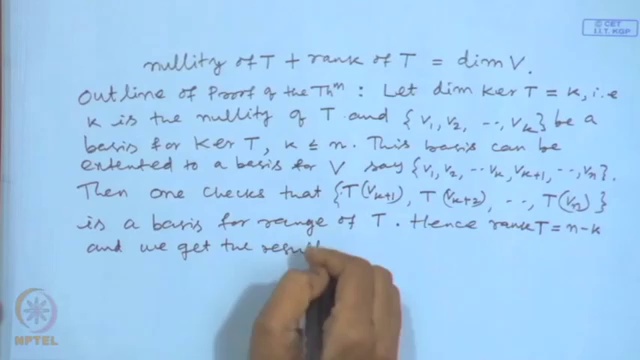 © CET
I.I.T. KGP
nullity of T + rank of T = dim V.
Outline of Proof of the Thm : Let dim Ker T = k, i.e
k is the nullity of T and {v1, v2, --, vk} be a
basis for Ker T, k ≤ n. This basis can be
extented to a basis for V say {v1, v2, -- vk, vk+1, --, vn}.
Then one checks that {T(vk+1), T(vk+2), --, T(vn)}
is a basis for range of T. Hence rank T = n-k
and we get the result
NPTEL